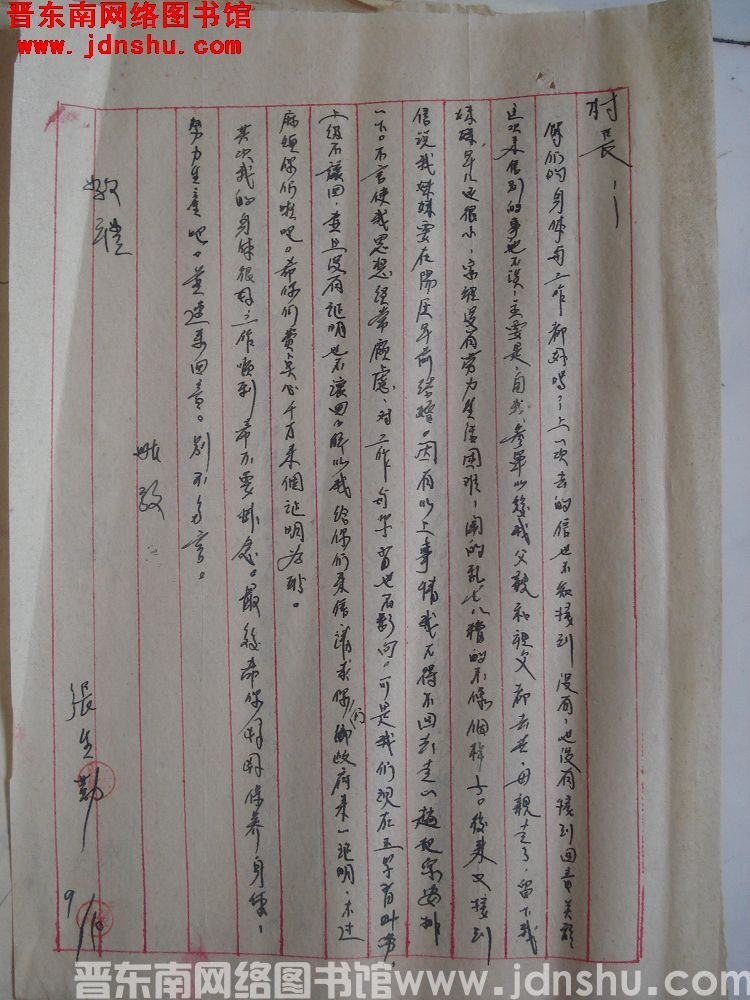 晋东南网络图书馆
www.jdnshu.com
村長：
你们的身体与工作都好吗？上一次去的信也不知接到没有，也没有接到回音
这次来信别的事也不谈，主要是自我参军以後我父親和祖父都去世，母親走了，留下我
妹妹，年令还很小，家裡没有劳力生活困难，闹的乱七八糟的不像個样子。後来又接到
信说我妹妹要在陽历年前结婚。因有以上事情我不得不回去走一趟把家安排
一下。不言使我思想经常顾虑，对工作与学習也有影向。可是我们现在正学習
上级不讓回，並且没有証明也不讓回，所以我给你们来信，請求你们鄉政府来一証明，不过
麻烦你们啦吧。希你们费点心千万来個証明为盼。
其次我的身体很好，工作顺利希不要掛念。最後希你们保养身体，
努力生產吧。並速来回音。别不多言。
此致
敬禮
張生勤
9/10
晋东南网络图书馆www.jdnshu.com